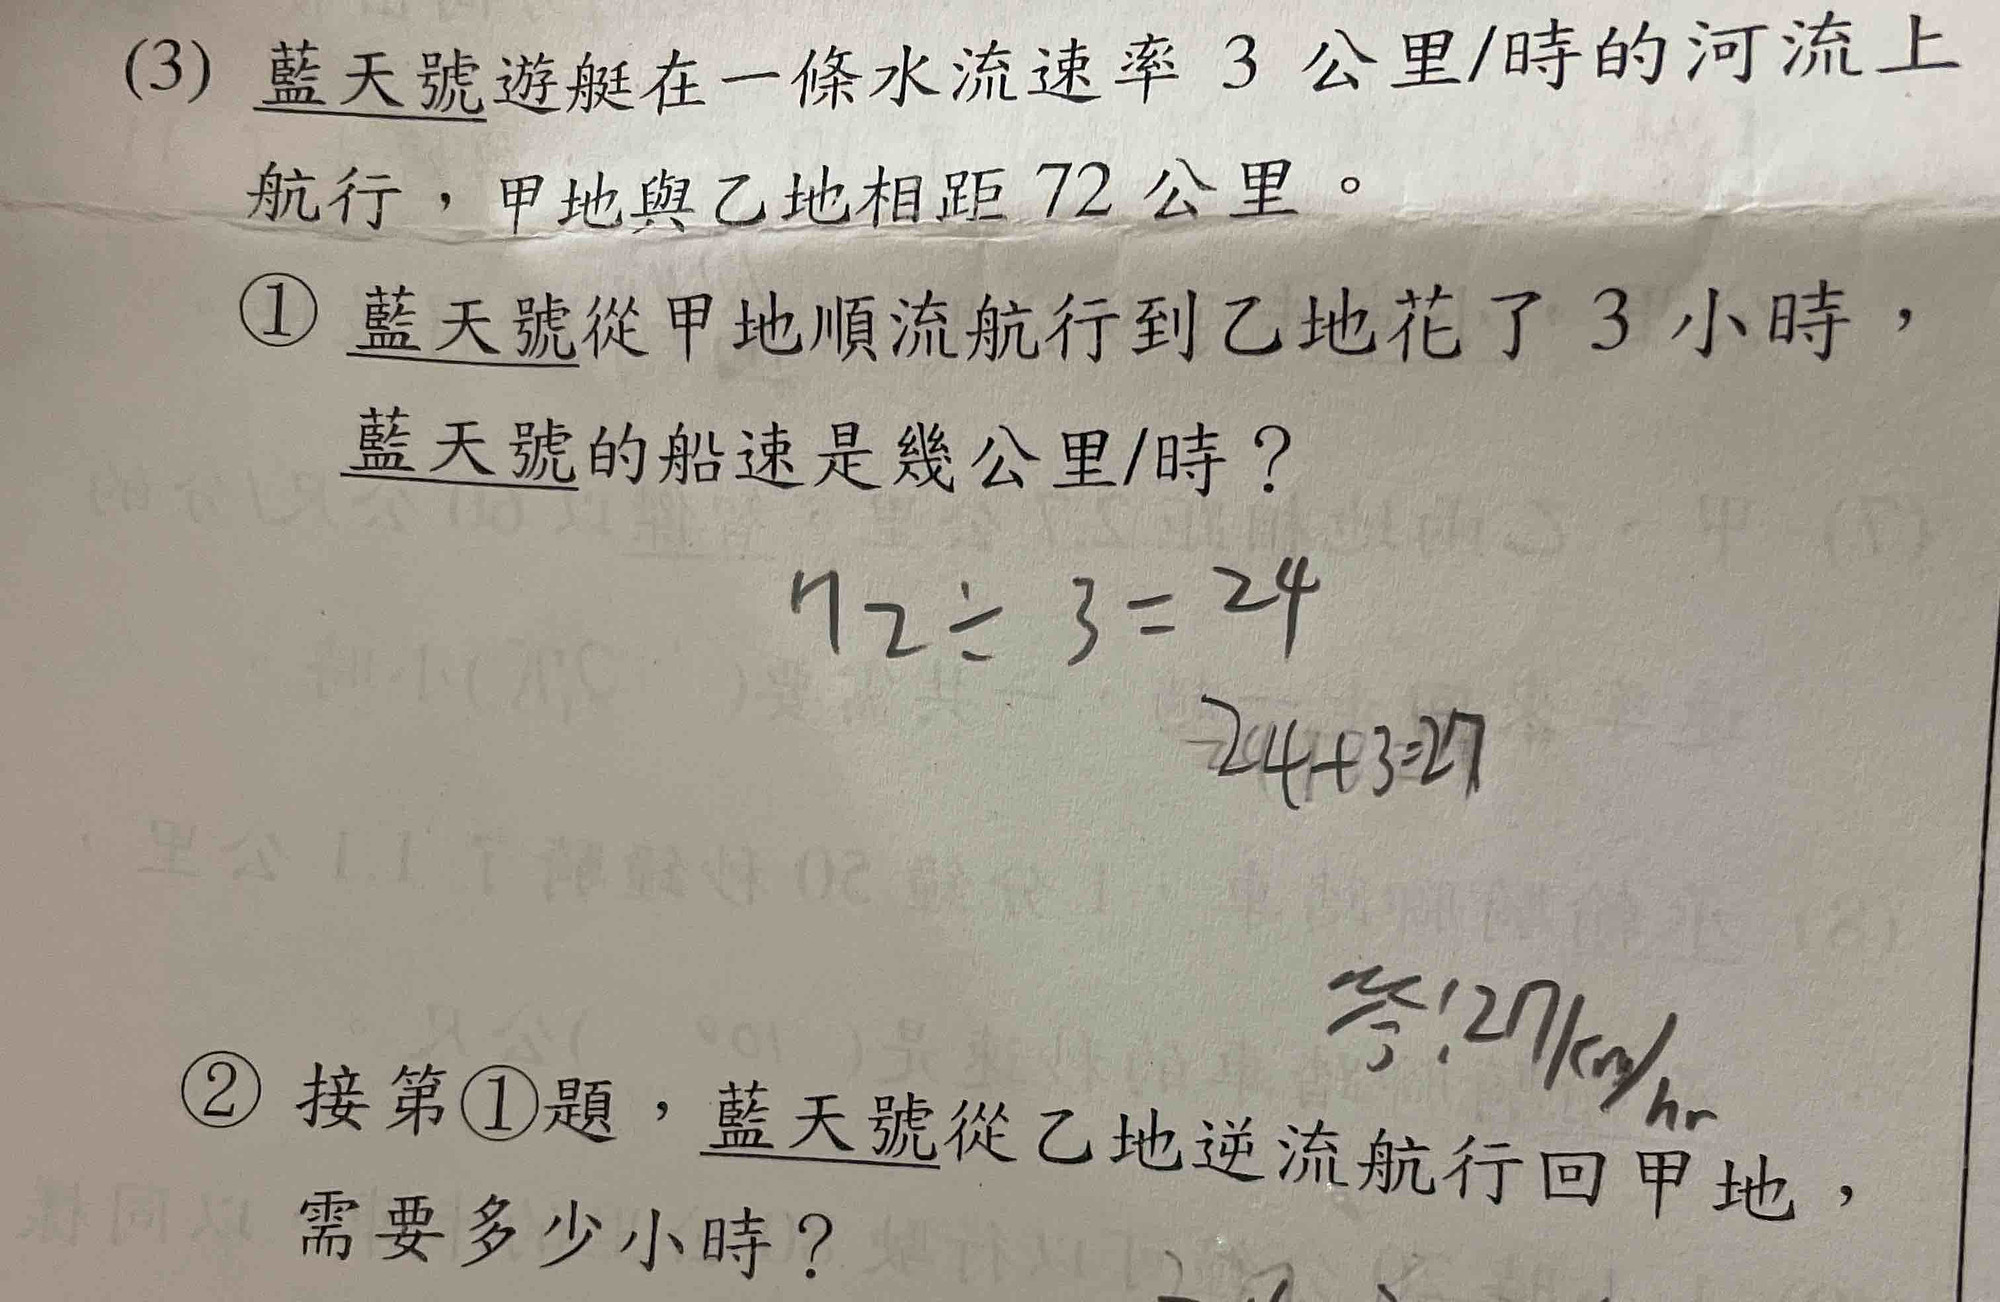 (3) 藍天號遊艇在一條水流速率 3 公里/時的河流上
航行，甲地與乙地相距 72 公里。
① 藍天號從甲地順流航行到乙地花了 3 小時，
藍天號的船速是幾公里/時？
72÷3=24
24+3=27
答:27km/hr
② 接第①題，藍天號從乙地逆流航行回甲地，
需要多少小時？